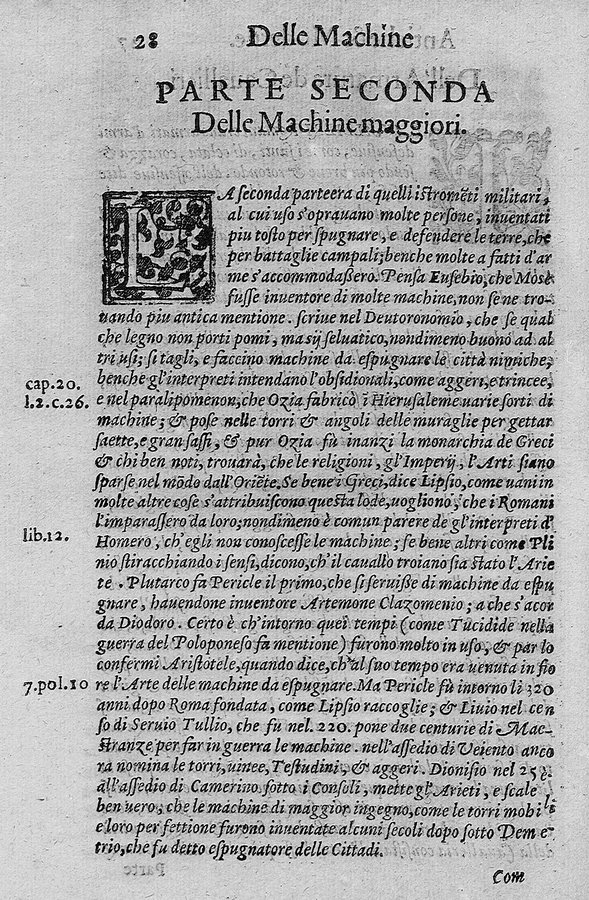 28 Delle Machine
PARTE SECONDA
Delle Machine maggiori.
LA seconda parte era di quelli istromẽti militari,
al cui uso s'opravano molte persone, inuentati
piu tosto per spugnare, e defendere le terre, che
per battaglie campali; benche molte a fatti d'ar
me s'accommodaßero. Pensa Eusebio, che Mosè
fusse inuentore di molte machine, non se ne tro-
uando piu antica mentione. scriue nel Deutoronomio, che se qual
che legno non porti pomi, ma sij seluatico, nondimeno buono ad al
tri usi; si tagli, e faccino machine da espugnare le città nimiche,
benche gl'interpreti intendano l'obsidionali, come aggeri, e trincee,
cap.20.
e nel paralipomenon, che Ozia fabricò ĩ Hierusaleme varie sorti di
l.2.c.26.
machine; & pose nelle torri & angoli delle muraglie per gettar
saette, e gran sassi, & pur Ozia fù inanzi la monarchia de Greci
& chi ben noti, trouarà, che le religioni, gl'Imperij, l'Arti siano
sparse nel mõdo dall'Oriẽte. Se bene i Greci, dice Lipsio, come uani in
molte altre cose s'attribuiscono questa lode, uogliono, che i Romani
l'imparassero da loro; nondimeno è comun parere de gl'interpreti d'
lib.12.
Homero, ch'egli non conoscesse le machine; se bene altri come Pli
nio stiracchiando i sensi, dicono, ch'il cauallo troiano sia stato l'Arie
te. Plutarco fa Pericle il primo, che si seruiße di machine da espu
gnare, hauendone inuentore Artemone Clazomenio; a che s'acor
da Diodoro. Certo è ch'intorno quei tempi (come Tucidide nella
guerra del Poloponeso fa mentione) furono molto in uso, & par lo
confermi Aristotele, quando dice, ch'al suo tempo era venuta in fio
7.pol.10
re l'Arte delle machine da espugnare. Ma Pericle fù intorno li 320
anni dopo Roma fondata, come Lipsio raccoglie; & Liuio nel cen
so di Seruio Tullio, che fu nel. 220. pone due centurie di Mae-
stranze per far in guerra le machine. nell'assedio di Veiento anco
ra nomina le torri, uinee, Testudini, & aggeri. Dionisio nel
all'assedio di Camerino sotto i Consoli, mette gl'Arieti, e scale
ben uero; che le machine di maggior ingegno, come le torri mobili
e loro perfettione furono inuentate alcuni secoli dopo sotto Deme
trio, che fu detto espugnatore delle Cittadi.
Com